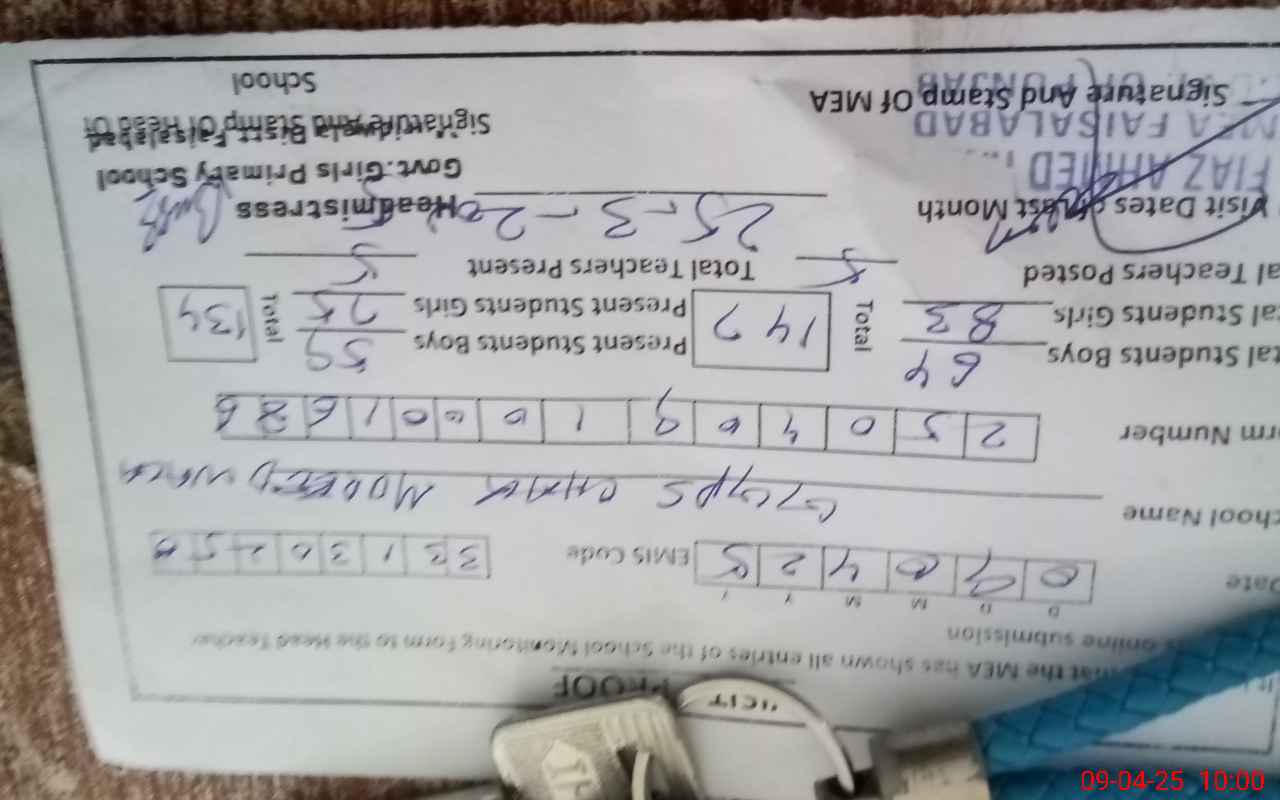 VISIT PROOF
that the MEA has shown all entries of the School Monitoring Form to the Head Teacher
online submission
D D M M Y Y
Date 0 9 0 4 2 5 EMIS Code 3 3 1 3 0 2 5 0
School Name GGPS CHAK
Form Number 2 5 0 4 0 9 1 0 0 0 1 6 2 6
Total Students Boys 64 Total 147 Present Students Boys 59 Total 134
Total Students Girls 83 Present Students Girls 75
Total Teachers Posted 5 Total Teachers Present 5
Visit Dates of Last Month 25-3-2025 Headmistress
FIAZ AHMED Govt. Girls Primary School
MEA FAISALABAD Distt Faisalabad
Signature And Stamp Of MEA Signature And Stamp Of Head Of
School
PUNJAB
09-04-25 10:00